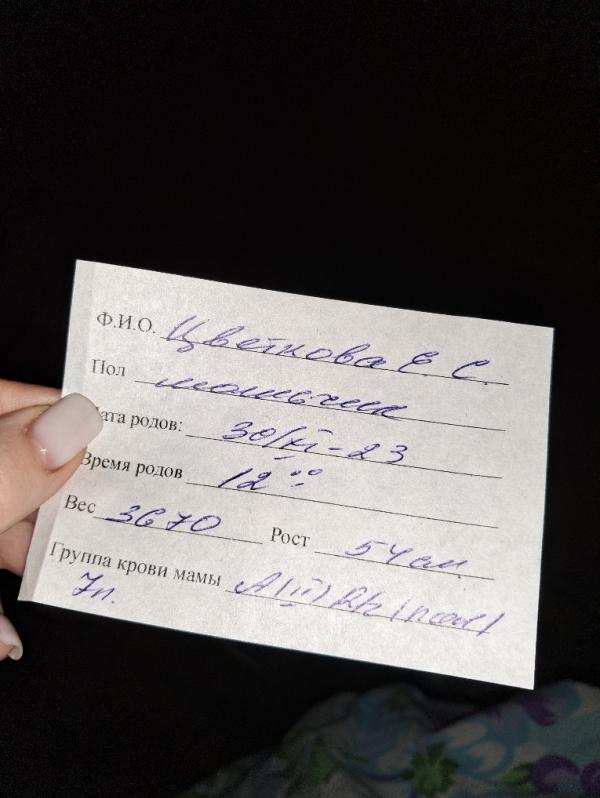 Ф.И.О. Цветкова Е. С.
Пол мальчик
ата родов: 30/XI-23
Время родов 12⁰⁰
Вес 3670 Рост 54 см
Группа крови мамы A(II) Rh
7п.